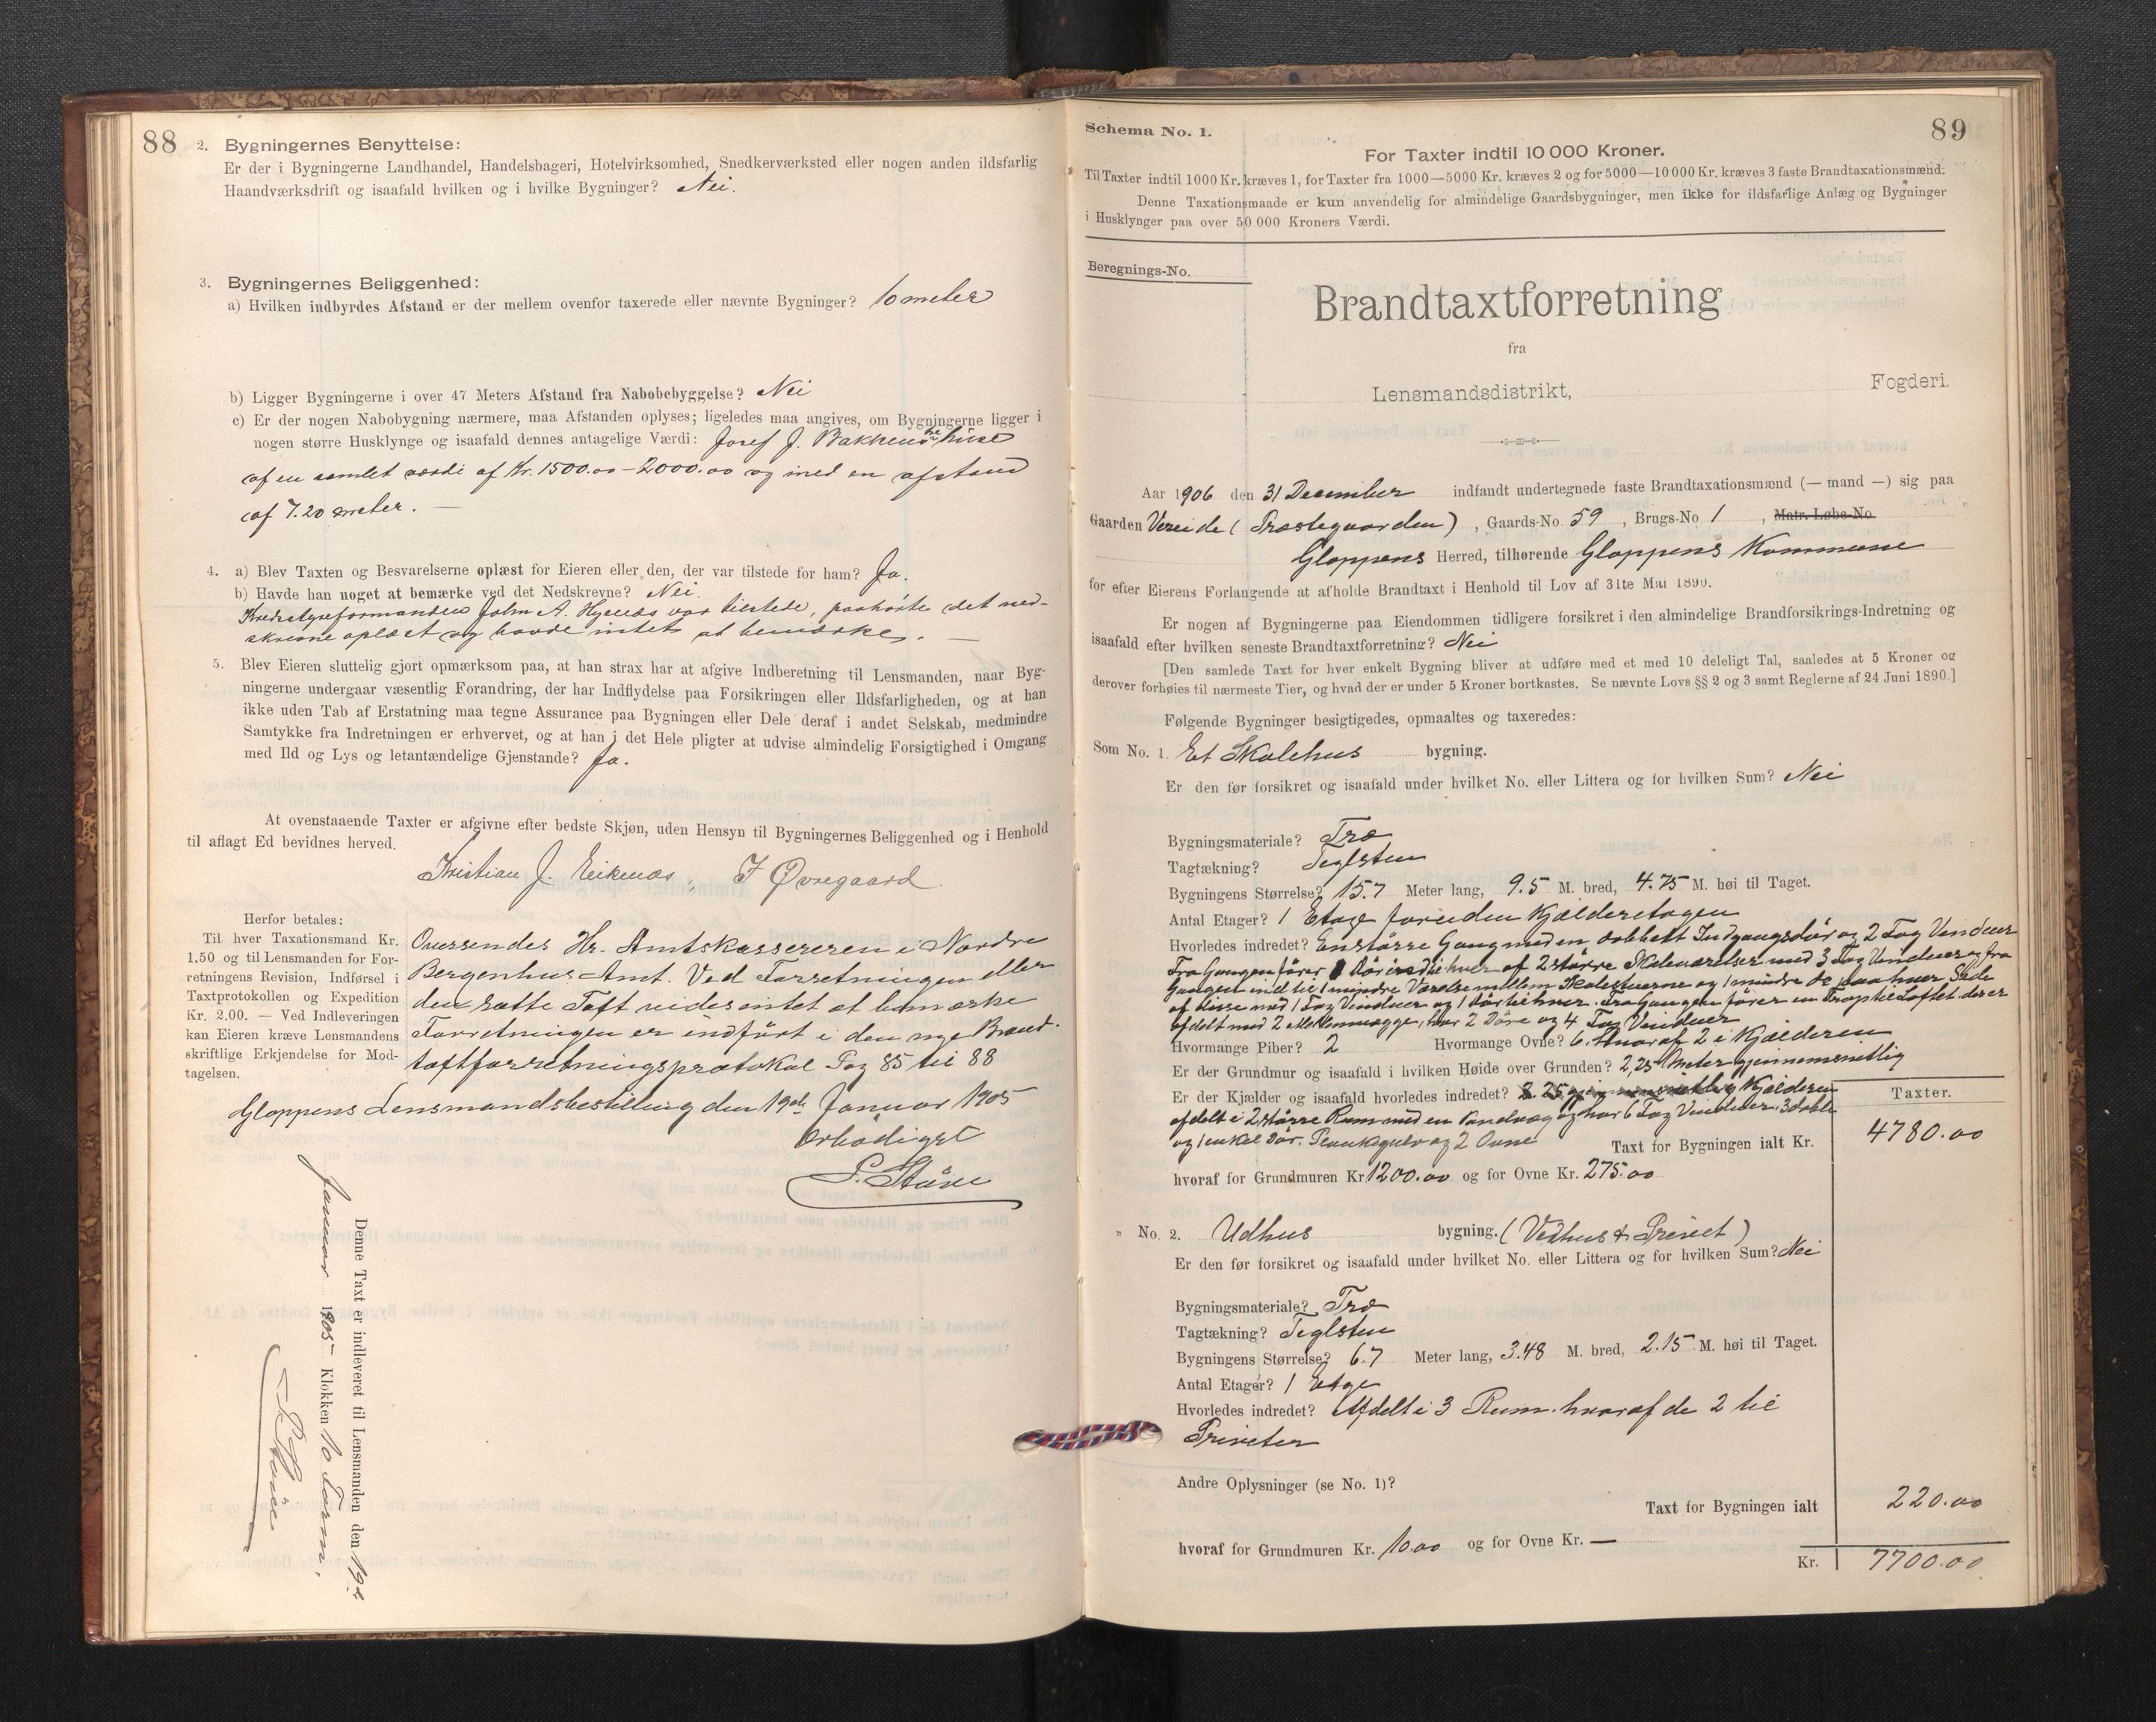 88
2. Bygningernes Benyttelse:
Er der i Bygningerne Landhandel, Handelsbageri, Hotelvirksomhed, Snedkerværksted eller nogen anden ildsfarlig
Haandværksdrift og isaafald hvilken og i hvilke Bygninger? Nei.
3. Bygningernes Beliggenhed:
a) Hvilken indbyrdes Afstand er der mellem ovenfor taxerede eller nævnte Bygninger? 10 meter
b) Ligger Bygningerne i over 47 Meters Afstand fra Nabobebyggelse? Nei
c) Er der nogen Nabobygning nærmere, maa Afstanden oplyses; ligeledes maa angives, om Bygningerne ligger i
nogen større Husklynge og isaafald dennes antagelige Værdi: Josef J. Bakkens huse
af en samlet værdi af Kr. 1500.00 – 2000.00 og med en afstand
af 7.20 meter. —
4. a) Blev Taxten og Besvarelserne oplæst for Eieren eller den, der var tilstede for ham? Ja.
b) Havde han noget at bemærke ved det Nedskrevne? Nei.
Kredsstyreformanden John A. Hjenæs var tilstede, paahørte det ned-
skrevne oplæst og havde intet at bemærke. —
5. Blev Eieren sluttelig gjort opmærksom paa, at han strax har at afgive Indberetning til Lensmanden, naar Byg-
ningerne undergaar væsentlig Forandring, der har Indflydelse paa Forsikringen eller Ildsfarligheden, og at han
ikke uden Tab af Erstatning maa tegne Assurance paa Bygningen eller Dele deraf i andet Selskab, medmindre
Samtykke fra Indretningen er erhvervet, og at han i det Hele pligter at udvise almindelig Forsigtighed i Omgang
med Ild og Lys og letantændelige Gjenstande? Ja.
At ovenstaaende Taxter er afgivne efter bedste Skjøn, uden Hensyn til Bygningernes Beliggenhed og i Henhold
til aflagt Ed bevidnes herved.
Kristian J. Eikenæs, I Øvregaard
Herfor betales:
Til hver Taxationsmand Kr.
1.50 og til Lensmanden for For-
retningens Revision, Indførsel i
Taxtprotokollen og Expedition
Kr. 2.00. — Ved Indleveringen
kan Eieren kræve Lensmandens
skriftlige Erkjendelse for Mod-
tagelsen.
Oversendes Hr. Amtskassereren i Nordre
Bergenhus Amt. Ved Forretningen eller
den satte Taxt vides intet at bemærke
Forretningen er indført i den nye Brand-
taxtforretningsprotokol Pag 85 til 88
Gloppens Lensmandsbestilling den 19de Januar 1905
Ærbødigst
P. Støve
Denne Taxt er indleveret til Lensmanden den 19de
Januar 1905 Klokken 10 Form.
P. Støve
89
Schema No. 1.
For Taxter indtil 10 000 Kroner.
Til Taxter indtil 1000 Kr. kræves 1, for Taxter fra 1000—5000 Kr. kræves 2 og for 5000—10 000 Kr. kræves 3 faste Brandtaxationsmænd.
Denne Taxationsmaade er kun anvendelig for almindelige Gaardsbygninger, men ikke for ildsfarlige Anlæg og Bygninger
i Husklynger paa over 50 000 Kroners Værdi.
Beregnings-No.
Brandtaxtforretning
fra
Lensmandsdistrikt, Fogderi.
Aar 1906 den 31 December indfandt undertegnede faste Brandtaxationsmænd (— mand —) sig paa
Gaarden Vereide (Præstegaarden), Gaards-No. 59, Brugs-No. 1, Matr. Løbe-No.
Gloppens Herred, tilhørende Gloppens Kommune
for efter Eierens Forlangende at afholde Brandtaxt i Henhold til Lov af 31te Mai 1890.
Er nogen af Bygningerne paa Eiendommen tidligere forsikret i den almindelige Brandforsikrings-Indretning og
isaafald efter hvilken seneste Brandtaxtforretning? Nei
[Den samlede Taxt for hver enkelt Bygning bliver at udføre med et med 10 deleligt Tal, saaledes at 5 Kroner og
derover forhøies til nærmeste Tier, og hvad der er under 5 Kroner bortkastes. Se nævnte Lovs §§ 2 og 3 samt Reglerne af 24 Juni 1890.]
Følgende Bygninger besigtigedes, opmaaltes og taxeredes:
Som No. 1. Et Skolehus bygning.
Er den før forsikret og isaafald under hvilket No. eller Littera og for hvilken Sum? Nei
Bygningsmateriale? Træ
Tagtækning? Teglsten
Bygningens Størrelse? 15.7 Meter lang, 9.5 M. bred, 4.75 M. høi til Taget.
Antal Etager? 1 Etage foruden Kjælderetagen
Hvorledes indredet? En større Gang med en dobbelt Indgangsdør og 2 Fag Vinduer
Fra Gangen fører 1 Dør ind til hver af 2 større Skoleværelser med 3 Fag Vinduer og fra
Gangen ind til 1 mindre Værelse mellem Skolestuerne og 1 mindre do paa hver Side
af disse med 1 Fag Vinduer og 1 Dør til hver. Fra Gangen fører en Trap til Loftet der er
afdelt med 2 Mellemvægge, har 2 Døre og 4 Fag Vinduer
Hvormange Piber? 2 Hvormange Ovne? 6. Hvoraf 2 i Kjælderen
Er der Grundmur og isaafald i hvilken Høide over Grunden? 2,25 Meter gjennemsnitlig
Er der Kjælder og isaafald hvorledes indredet? 2.25 gjennemsnitlig Kjælderen
afdelt i 2 større Rum med en Tendvæg og har 6 Fag Vinduer, 3 doble
og 1 enkel Dør. Plankgulv og 2 Ovne
Taxter.
Taxt for Bygningen ialt Kr. 4780.00
hvoraf for Grundmuren Kr. 1200.00 og for Ovne Kr. 275.00
" No. 2. Udhus bygning. (Vedhus & Privet)
Er den før forsikret og isaafald under hvilket No. eller Littera og for hvilken Sum? Nei
Bygningsmateriale? Træ
Tagtækning? Teglsten
Bygningens Størrelse? 6.7 Meter lang, 3.48 M. bred, 2.15 M. høi til Taget.
Antal Etager? 1 Etage
Hvorledes indredet? Afdelt i 3 Rum. hvoraf de 2 til
Priveter
Andre Oplysninger (se No. 1)?
Taxt for Bygningen ialt 220.00
hvoraf for Grundmuren Kr. 10.00 og for Ovne Kr. —
Kr. 7700.00